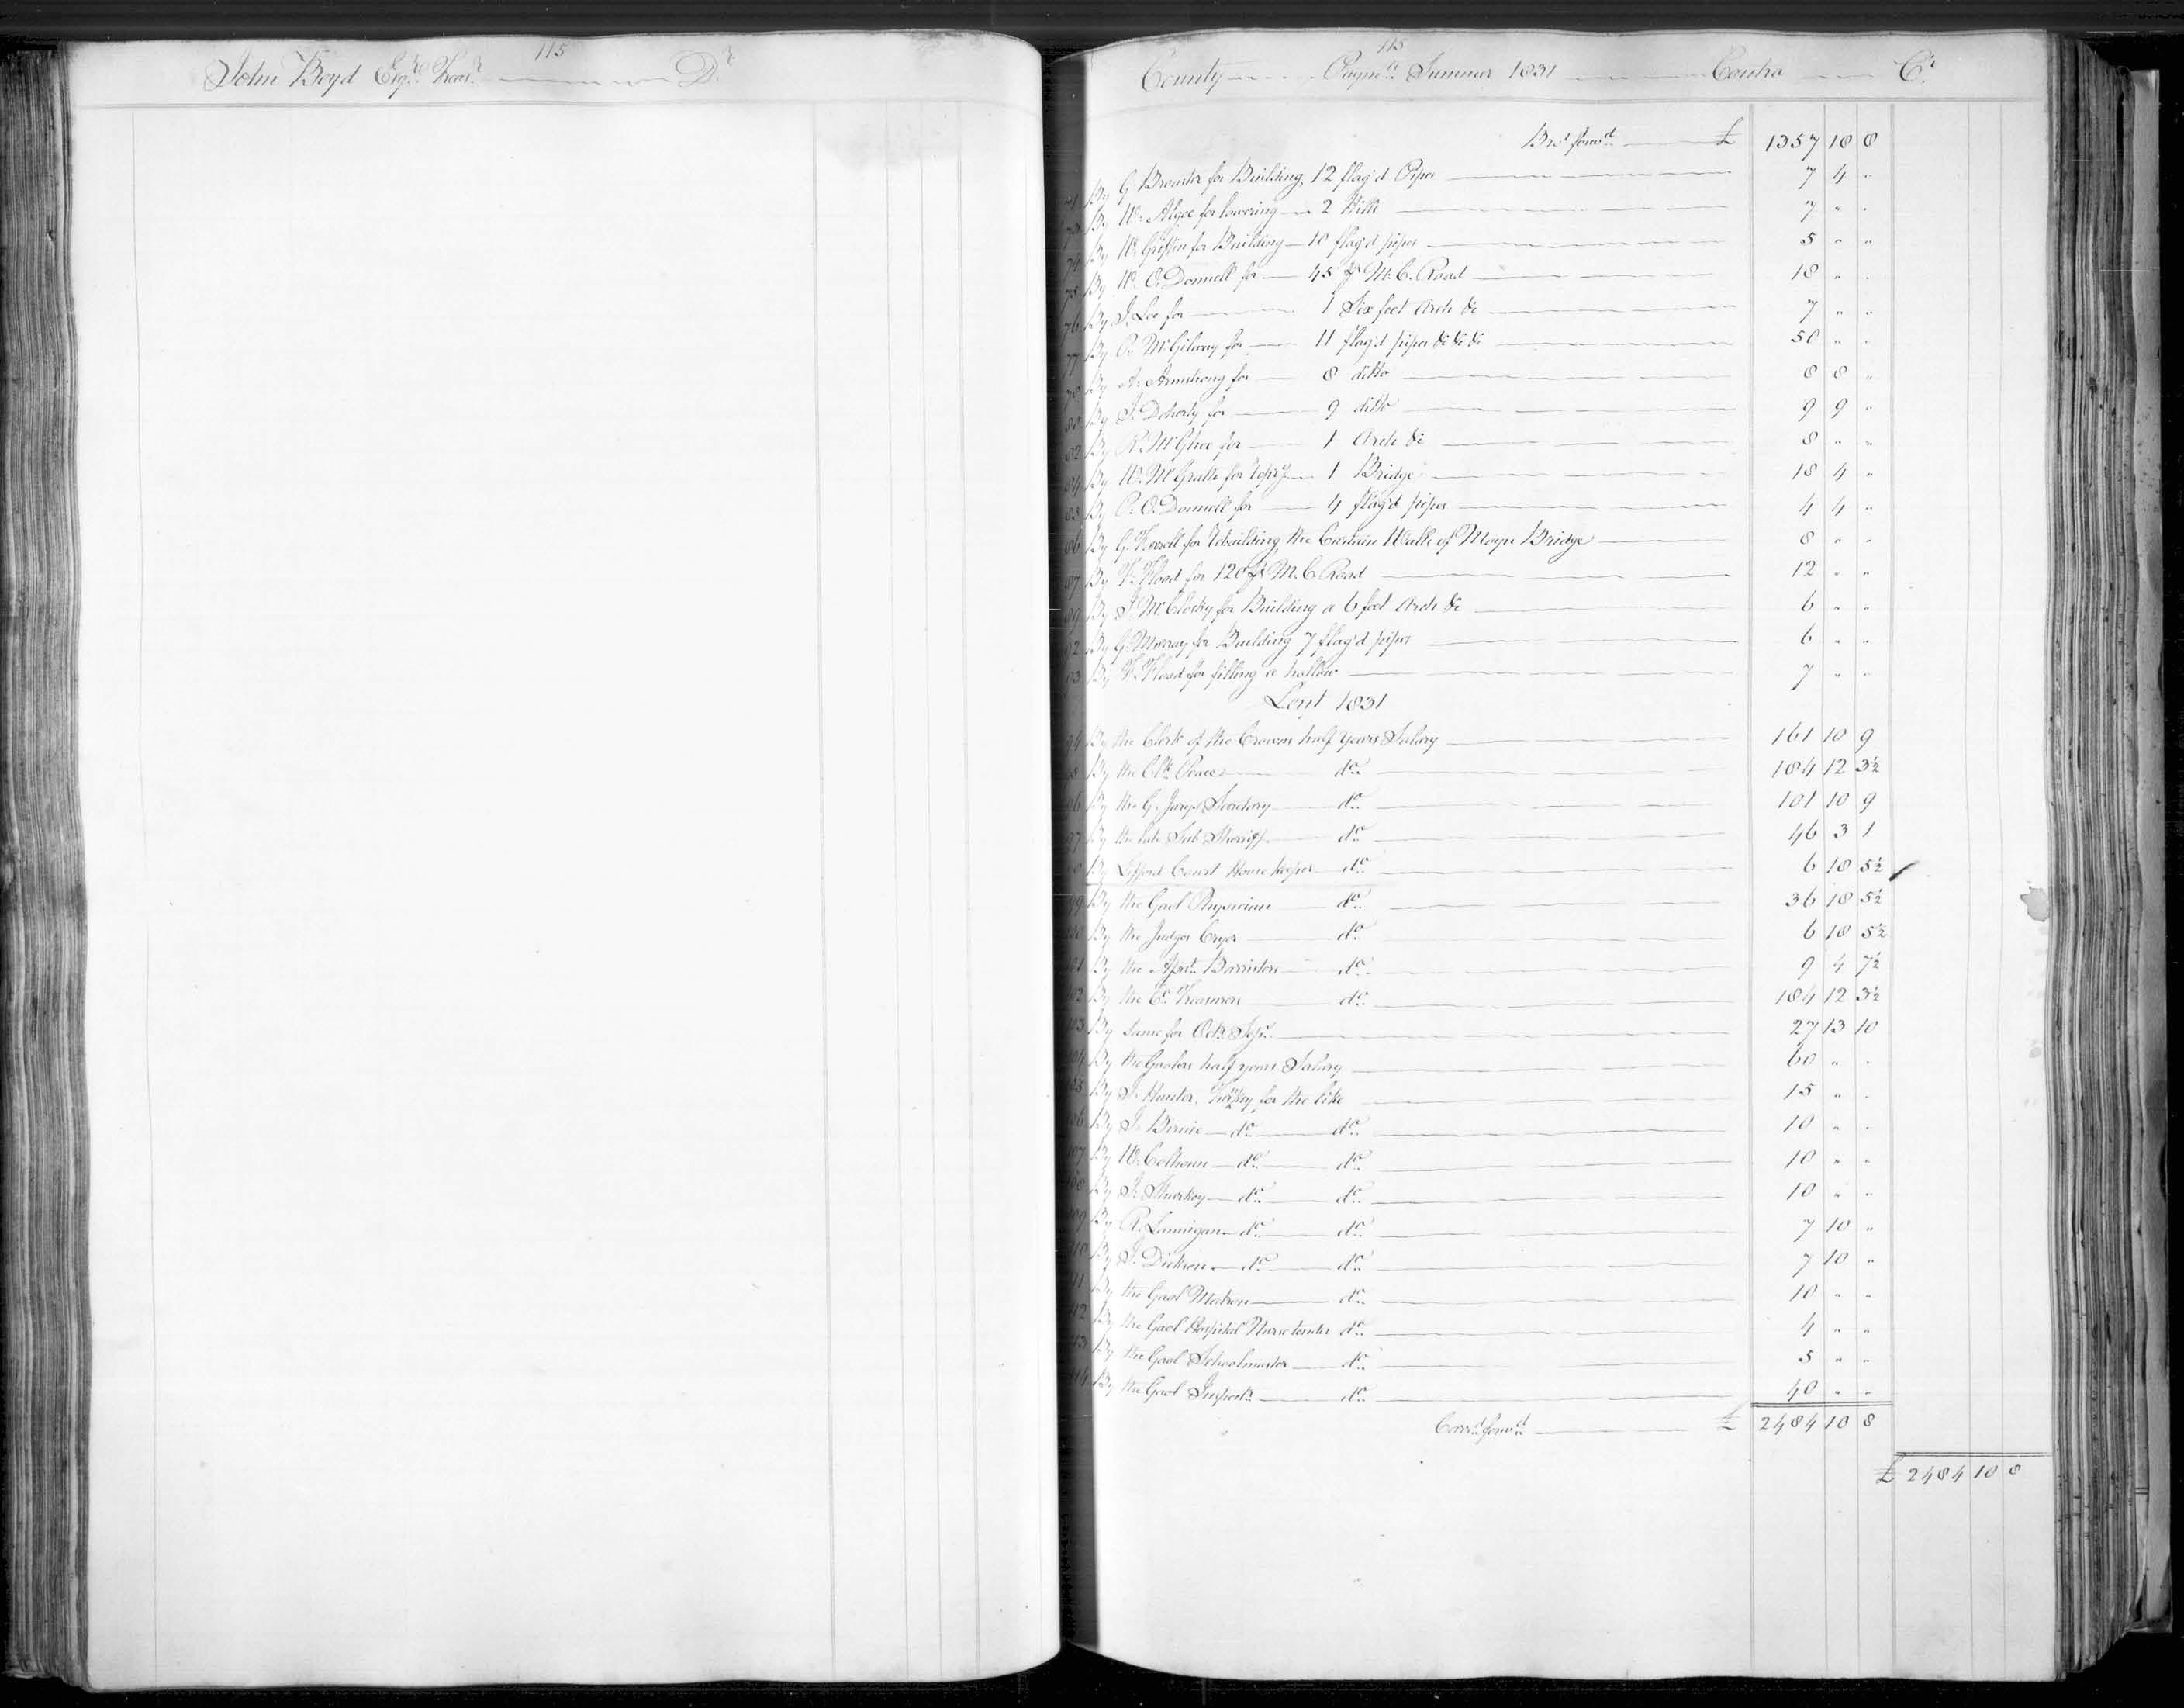 115
John Boyd Esqre. Treasr. Dr.
115
County Paymts. Summer 1831 Contra Cr.
Brot. forwd. £ 1357 18 8
By G. Brewster for Building 12 flag'd Pipes 7 4 "
By Wm. Algoe for lowering 2 Hills 7 " "
74 By W. Griffin for Building 10 flag'd pipes 5 " "
75 By W. O. Donnell for 45 ps M. C. Road 18 " "
76 By J. Lee for 1 Six feet Arch &c 7 " "
77 By P. McGilway for 11 flag'd pipes &c &c &c 50 " "
78 By A. Armstrong for 8 ditto 8 8 "
80 By J. Doherty for 9 ditto 9 9 "
82 By R. McGhee for 1 Arch &c 8 " "
84 By W. McGrath for 1 Bridge 18 4 "
85 By P. O. Donnell for 4 flag'd pipes 4 4 "
86 By G. for rebuilding the Curtain Walls of Moyne Bridge 8 " "
87 By T. Flood for 120 ps M. C. Road 12 " "
89 By J. McClosky for Building a 6 feet Arch &c 6 " "
92 By G. Murray for Building 7 flag'd pipes 6 " "
93 By T. Flood for filling a hollow 7 " "
Lent 1831
94 By the Clerk of the Crowns half years Salary 161 10 9
95 By the Clk. Peace do. 184 12 3½
96 By the G. Jurys Secretary do. 101 10 9
97 By the late Sub Sheriff do. 46 3 1
98 By Lifford Court House keeper do. 6 18 5½
99 By the Gaol Physician do. 36 18 5½
100 By the Judges Cryer do. 6 18 5½
101 By the Asst. Barristers do. 9 4 7½
102 By the Co. Treasurers do. 184 12 3½
103 By Same for 27 13 10
104 By the Gaolers half years Salary 60 " "
105 By J. Hunter, Turnkey for the like 15 " "
106 By J. Birnie do. do. 10 " "
107 By W. Colhoun do. do. 10 " "
108 By J. Sharkey do. do. 10 " "
109 By R. Lannigan do. do. 7 10 "
110 By J. Dickson do. do. 7 10 "
111 By the Gaol Matron do. 10 " "
112 By the Gaol Hospital Nurse tender do. 4 " "
113 By the Gaol Schoolmaster do. 5 " "
114 By the Gaol Inspectr. do. 40 " "
Carrd. forwd. £ 2484 10 8
£ 2484 10 8